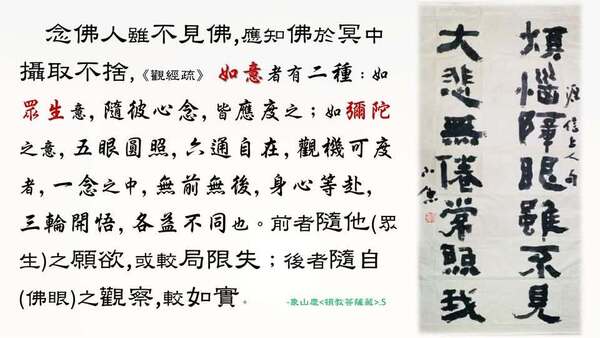 念佛人雖不見佛,應知佛於冥中
攝取不捨,《觀經疏》 如意者有二種：如
眾生意,隨彼心念,皆應度之；如彌陀
之意,五眼圓照,六通自在,觀機可度
者,一念之中,無前無後,身心等赴,
三輪開悟,各益不同也。前者隨他(眾
生)之願欲,或較局限失；後者隨自
(佛眼)之觀察,較如實。
-象山慶<頓教菩薩藏>.5
煩惱障眼雖不見
大悲無倦常照我
源信上人句
小魚